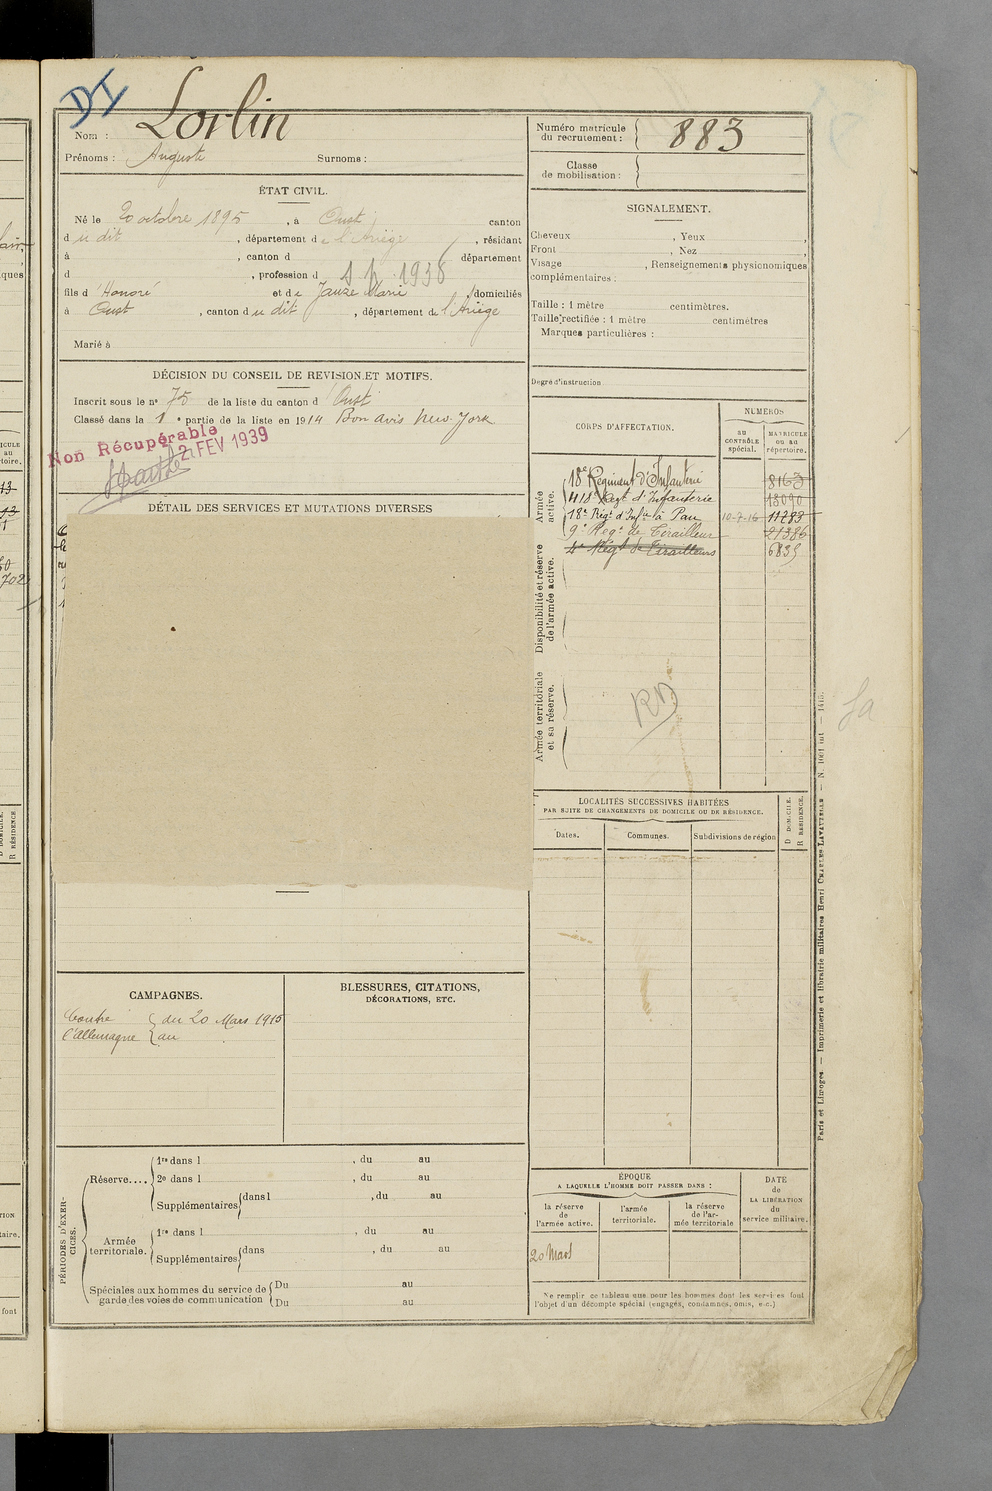 DI
Nom : Lorlin
Prénoms : Auguste Surnoms :
ÉTAT CIVIL.
Né le 20 octobre 1895, à Oust canton
d u dit, département de l'Ariège, résidant
à , canton d département
d , profession d 1938
fils d'Honoré et de Jauze Marie, domiciliés
à Oust, canton du dit, département de l'Ariège
Marié à
DÉCISION DU CONSEIL DE REVISION ET MOTIFS.
Inscrit sous le n° 75 de la liste du canton d'Oust
Classé dans la 1e partie de la liste en 1914 Bon avis New-York
Non Récupérable
2 FEV 1939
DÉTAIL DES SERVICES ET MUTATIONS DIVERSES
CAMPAGNES.
Contre { du 20 Mars 1915
l'Allemagne { au
BLESSURES, CITATIONS,
DÉCORATIONS, ETC.
PÉRIODES D'EXERCICES.
Réserve.... 1re dans l , du au
2e dans l , du au
Supplémentaires dans l , du au
Armée territoriale. 1re dans l , du au
Supplémentaires dans , du au
Spéciales aux hommes du service de garde des voies de communication
Du au
Du au
Numéro matricule
du recrutement : 883
Classe
de mobilisation :
SIGNALEMENT.
Cheveux , Yeux ,
Front , Nez ,
Visage , Renseignements physionomiques
complémentaires :
Taille : 1 mètre centimètres.
Taille rectifiée : 1 mètre centimètres
Marques particulières :
Degré d'instruction
CORPS D'AFFECTATION.
NUMÉROS
AU CONTRÔLE spécial.
MATRICULE ou au répertoire.
Armée active.
18e Régiment d'Infanterie 8163
418e Régt d'Infanterie 13090
18e Régt d'Infie à Pau 10-7-16 11283
9e Regt de Tirailleurs 21386
4e Régt de Tirailleurs 6835
Disponibilité et réserve de l'armée active.
Armée territoriale et sa réserve.
RD
LOCALITÉS SUCCESSIVES HABITÉES
PAR SUITE DE CHANGEMENTS DE DOMICILE OU DE RÉSIDENCE.
Dates. Communes. Subdivisions de région
D DOMICILE.
R RÉSIDENCE.
ÉPOQUE
A LAQUELLE L'HOMME DOIT PASSER DANS :
la réserve de l'armée active.
l'armée territoriale.
la réserve de l'armée territoriale
DATE
de
LA LIBÉRATION
du
service militaire.
20 Mars
Ne remplir ce tableau que pour les hommes dont les services font
l'objet d'un décompte spécial (engagés, condamnés, omis, etc.)
Paris et Limoges — Imprimerie et librairie militaires Henri CHARLES-LAVAUZELLE